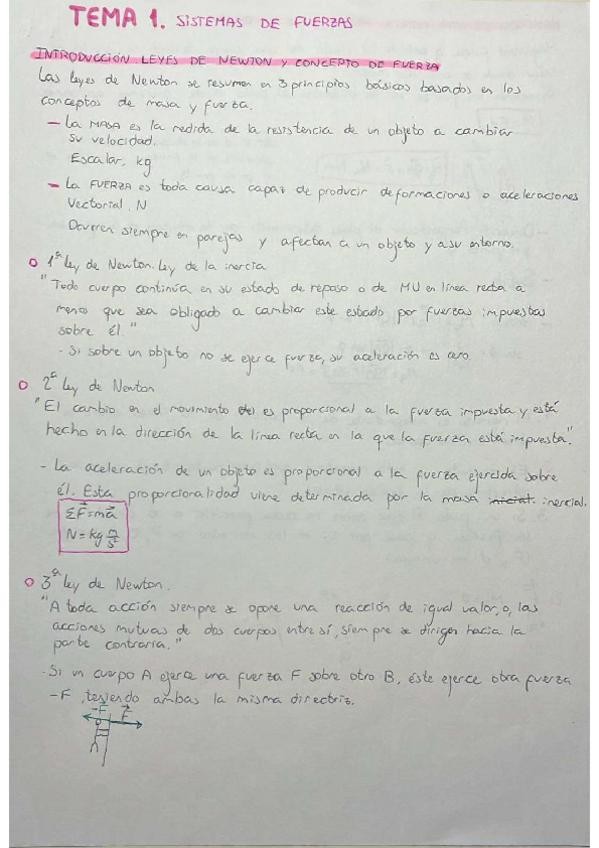 TEMA 1. SISTEMAS DE FUERZAS
INTRODUCCIÓN. LEYES DE NEWTON Y CONCEPTO DE FUERZA
Las leyes de Newton se resumen en 3 principios básicos basados en los
conceptos de masa y fuerza.
- La MASA es la medida de la resistencia de un objeto a cambiar
su velocidad.
Escalar, kg
- La FUERZA es toda causa capaz de producir deformaciones o aceleraciones
Vectorial. N
Ocurren siempre en parejas y afectan a un objeto y a su entorno.
1ª Ley de Newton. Ley de la inercia
"Todo cuerpo continúa en su estado de reposo o de MU en línea recta a
menos que sea obligado a cambiar este estado por fuerzas impuestas
sobre él."
- Si sobre un objeto no se ejerce fuerza, su aceleración es cero.
2ª Ley de Newton
"El cambio en el movimiento es proporcional a la fuerza impuesta y está
hecho en la dirección de la línea recta en la que la fuerza está impuesta".
- La aceleración de un objeto es proporcional a la fuerza ejercida sobre
él. Esta proporcionalidad viene determinada por la masa inicial. inercial.
ΣF⃗=ma⃗
N = kg m/s²
3ª Ley de Newton.
"A toda acción siempre se opone una reacción de igual valor, o, las
acciones mutuas de dos cuerpos entre sí, siempre se dirigen hacia la
parte contraria."
- Si un cuerpo A ejerce una fuerza F sobre otro B, éste ejerce otra fuerza
-F, teniendo ambas la misma directriz.
-F⃗ F⃗